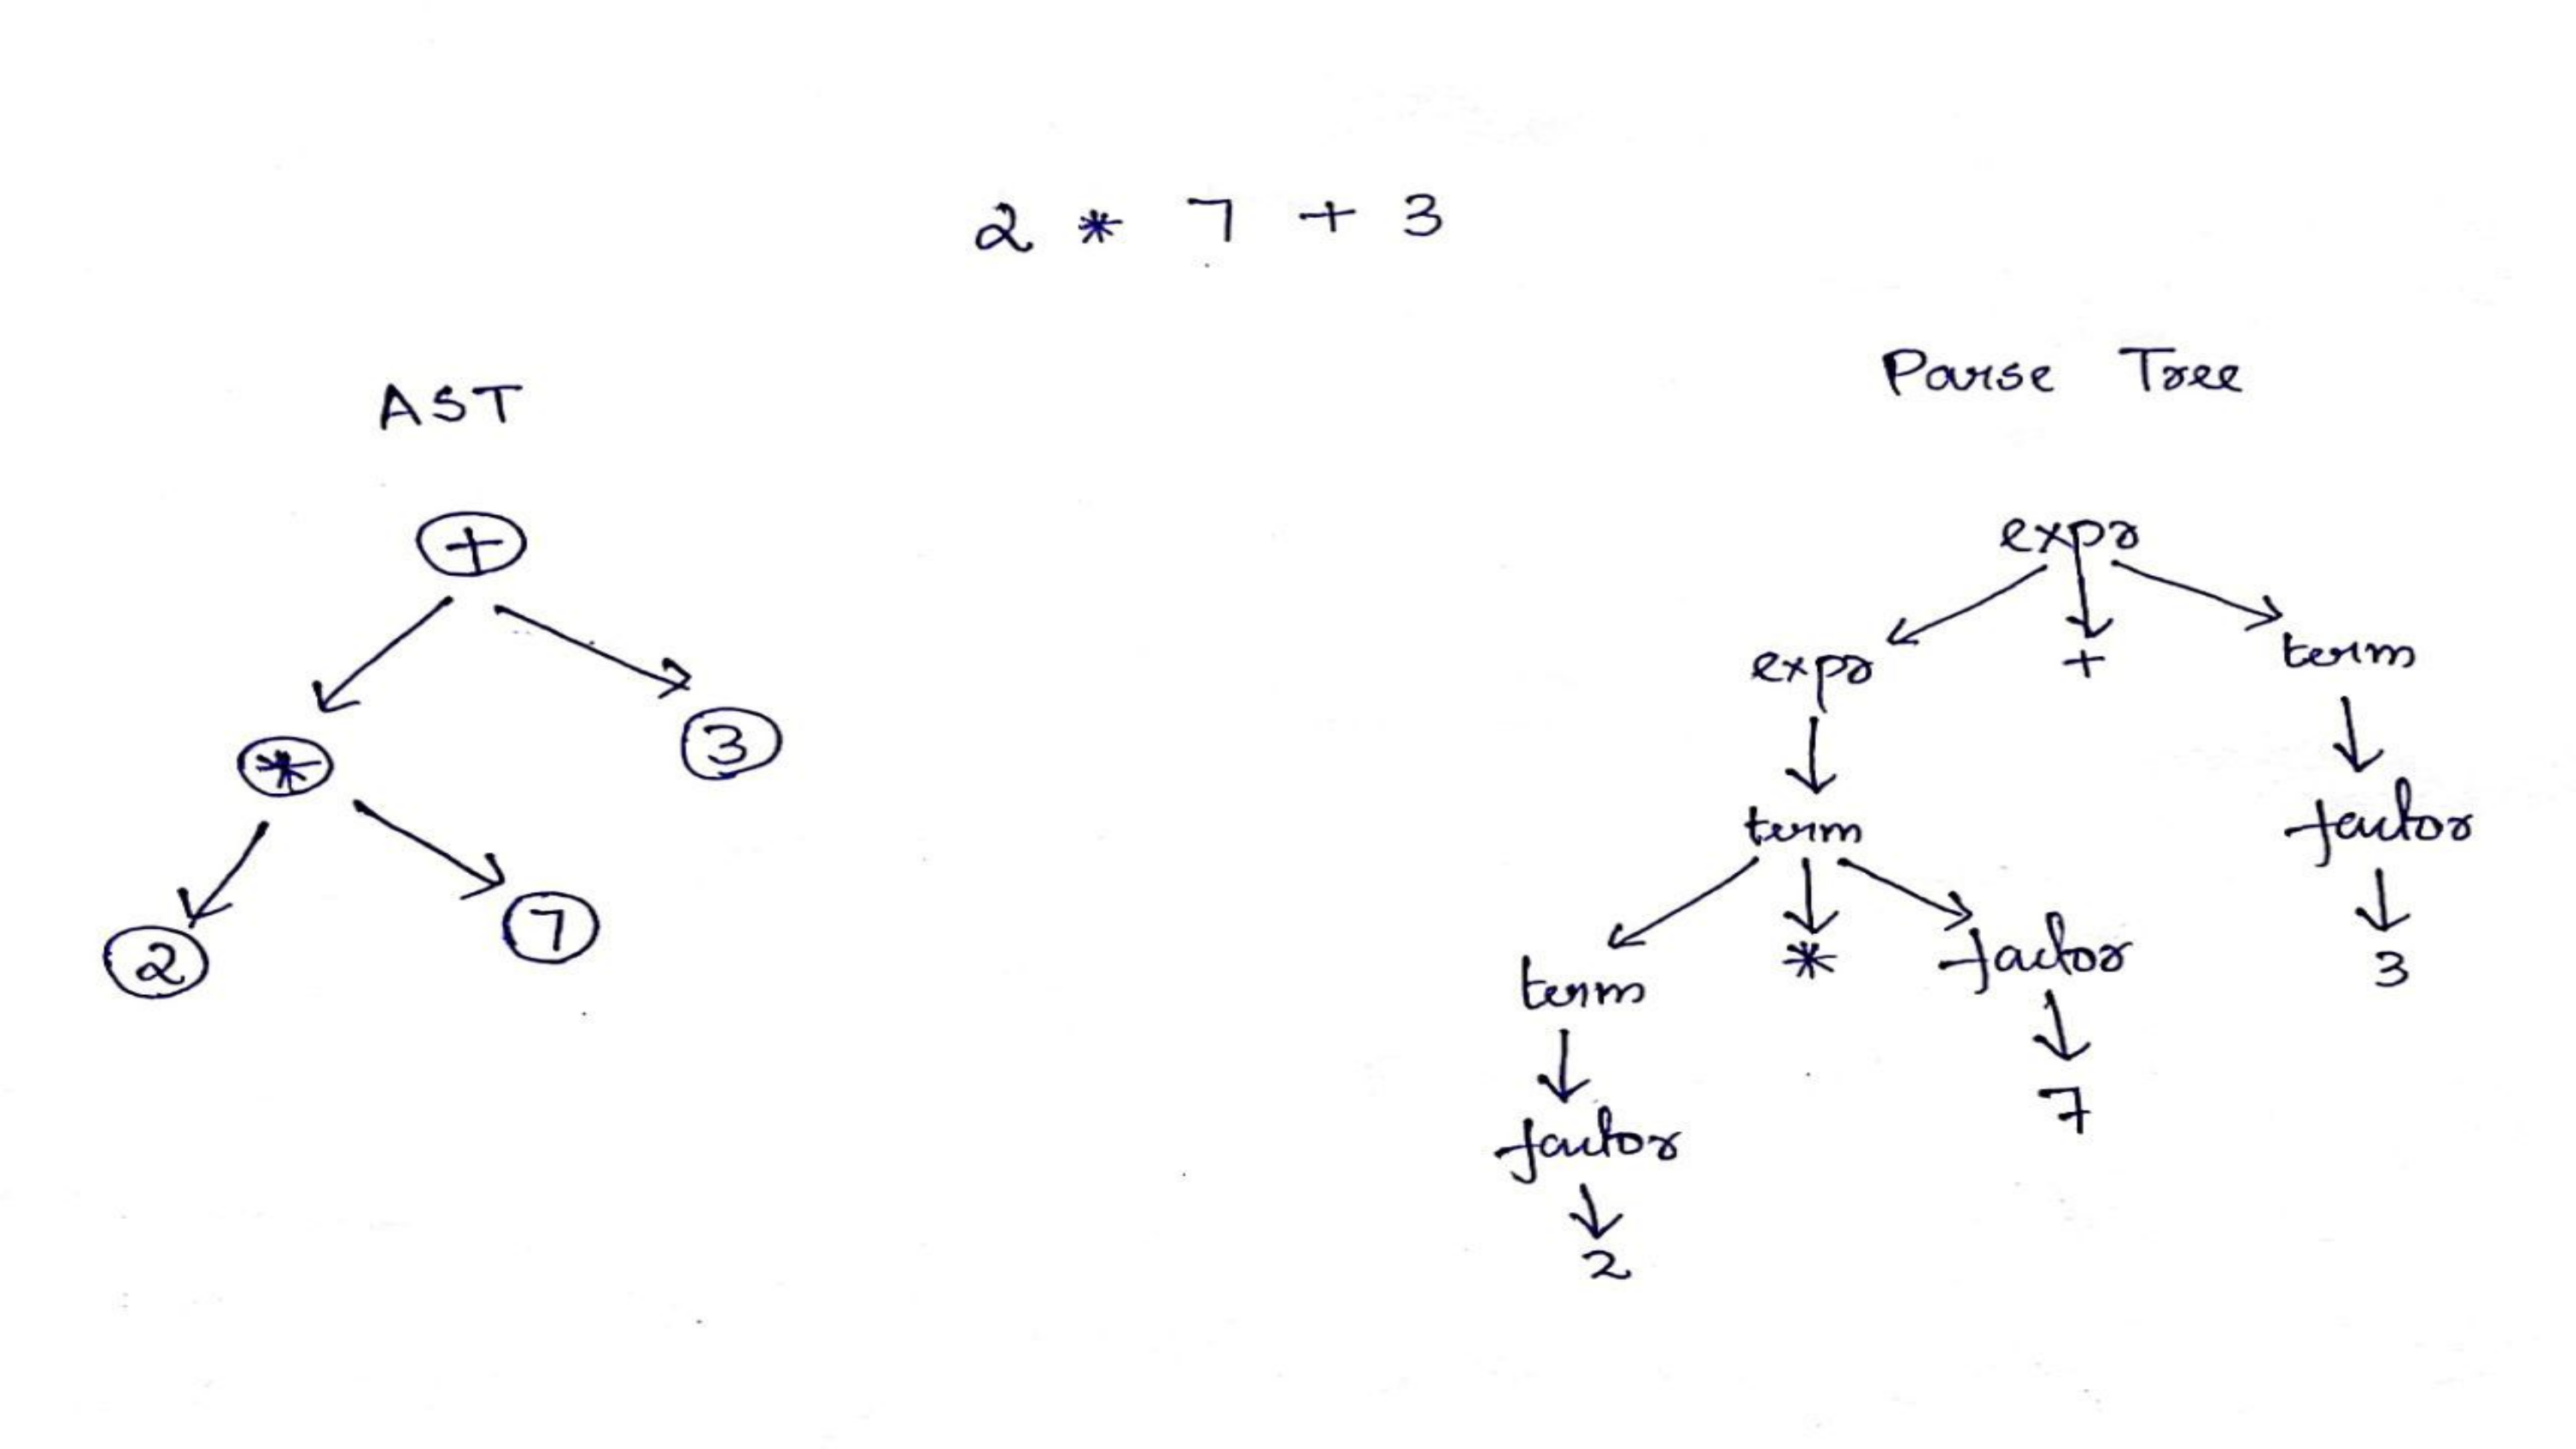 2 * 7 + 3
AST
+
* 3
2 7
Parse Tree
expr
expr + term
term factor
term * factor 3
factor 7
2